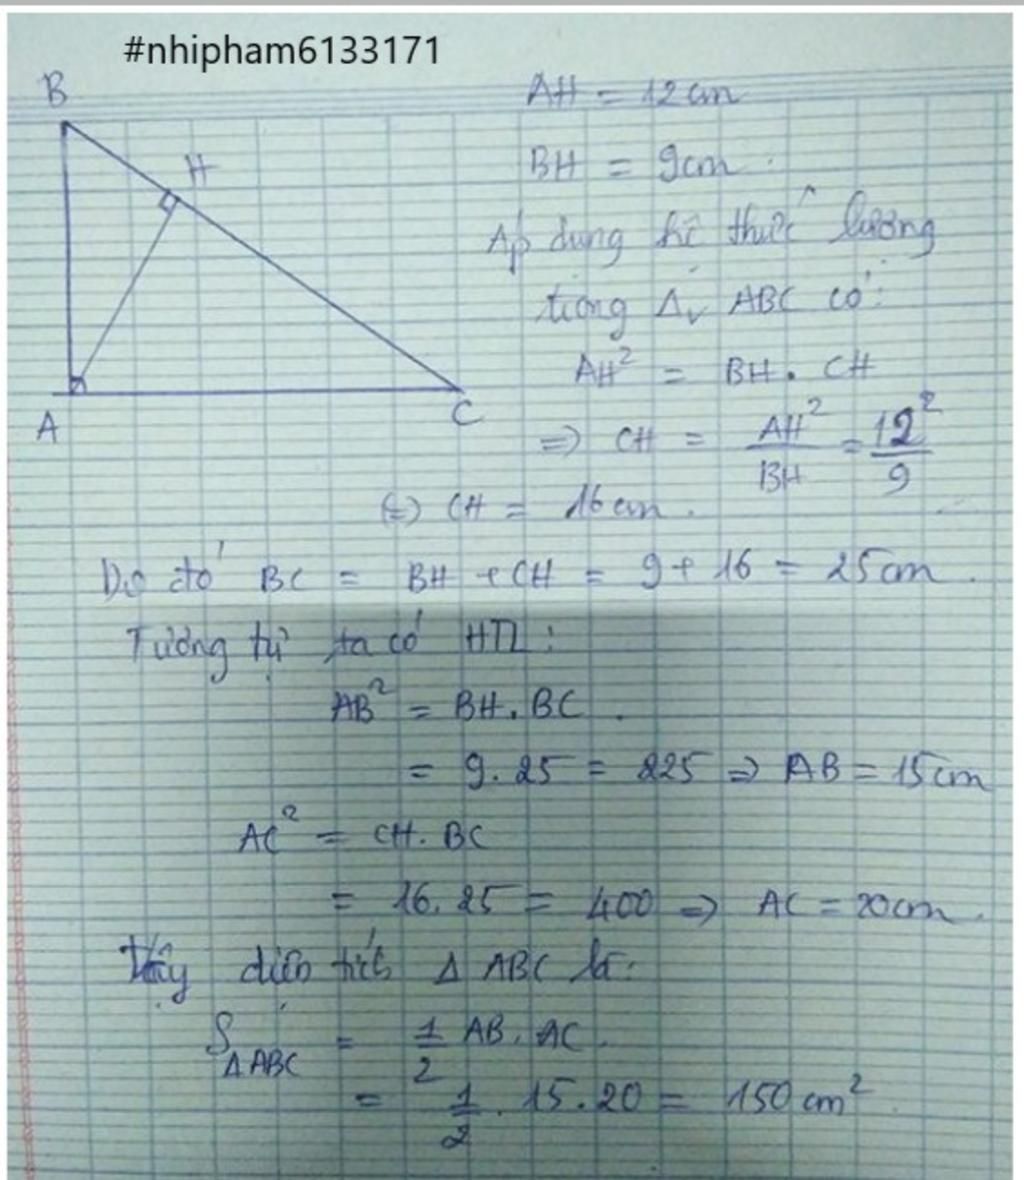 #nhipham6133171
B
H
A
C
AH = 12cm
BH = 9cm.
Áp dụng hệ thức lượng
trong Δv ABC có:
AH² = BH. CH
=> CH = AH²/BH = 12²/9
(=) CH = 16cm.
Do đó BC = BH + CH = 9 + 16 = 25cm.
Tương tự ta có HTL:
AB² = BH. BC.
= 9. 25 = 225 => AB = 15cm
AC² = CH. BC
= 16. 25 = 400 => AC = 20cm.
Vậy diện tích Δ ABC là:
SΔABC = 1/2 AB. AC.
= 1/2. 15. 20 = 150 cm².